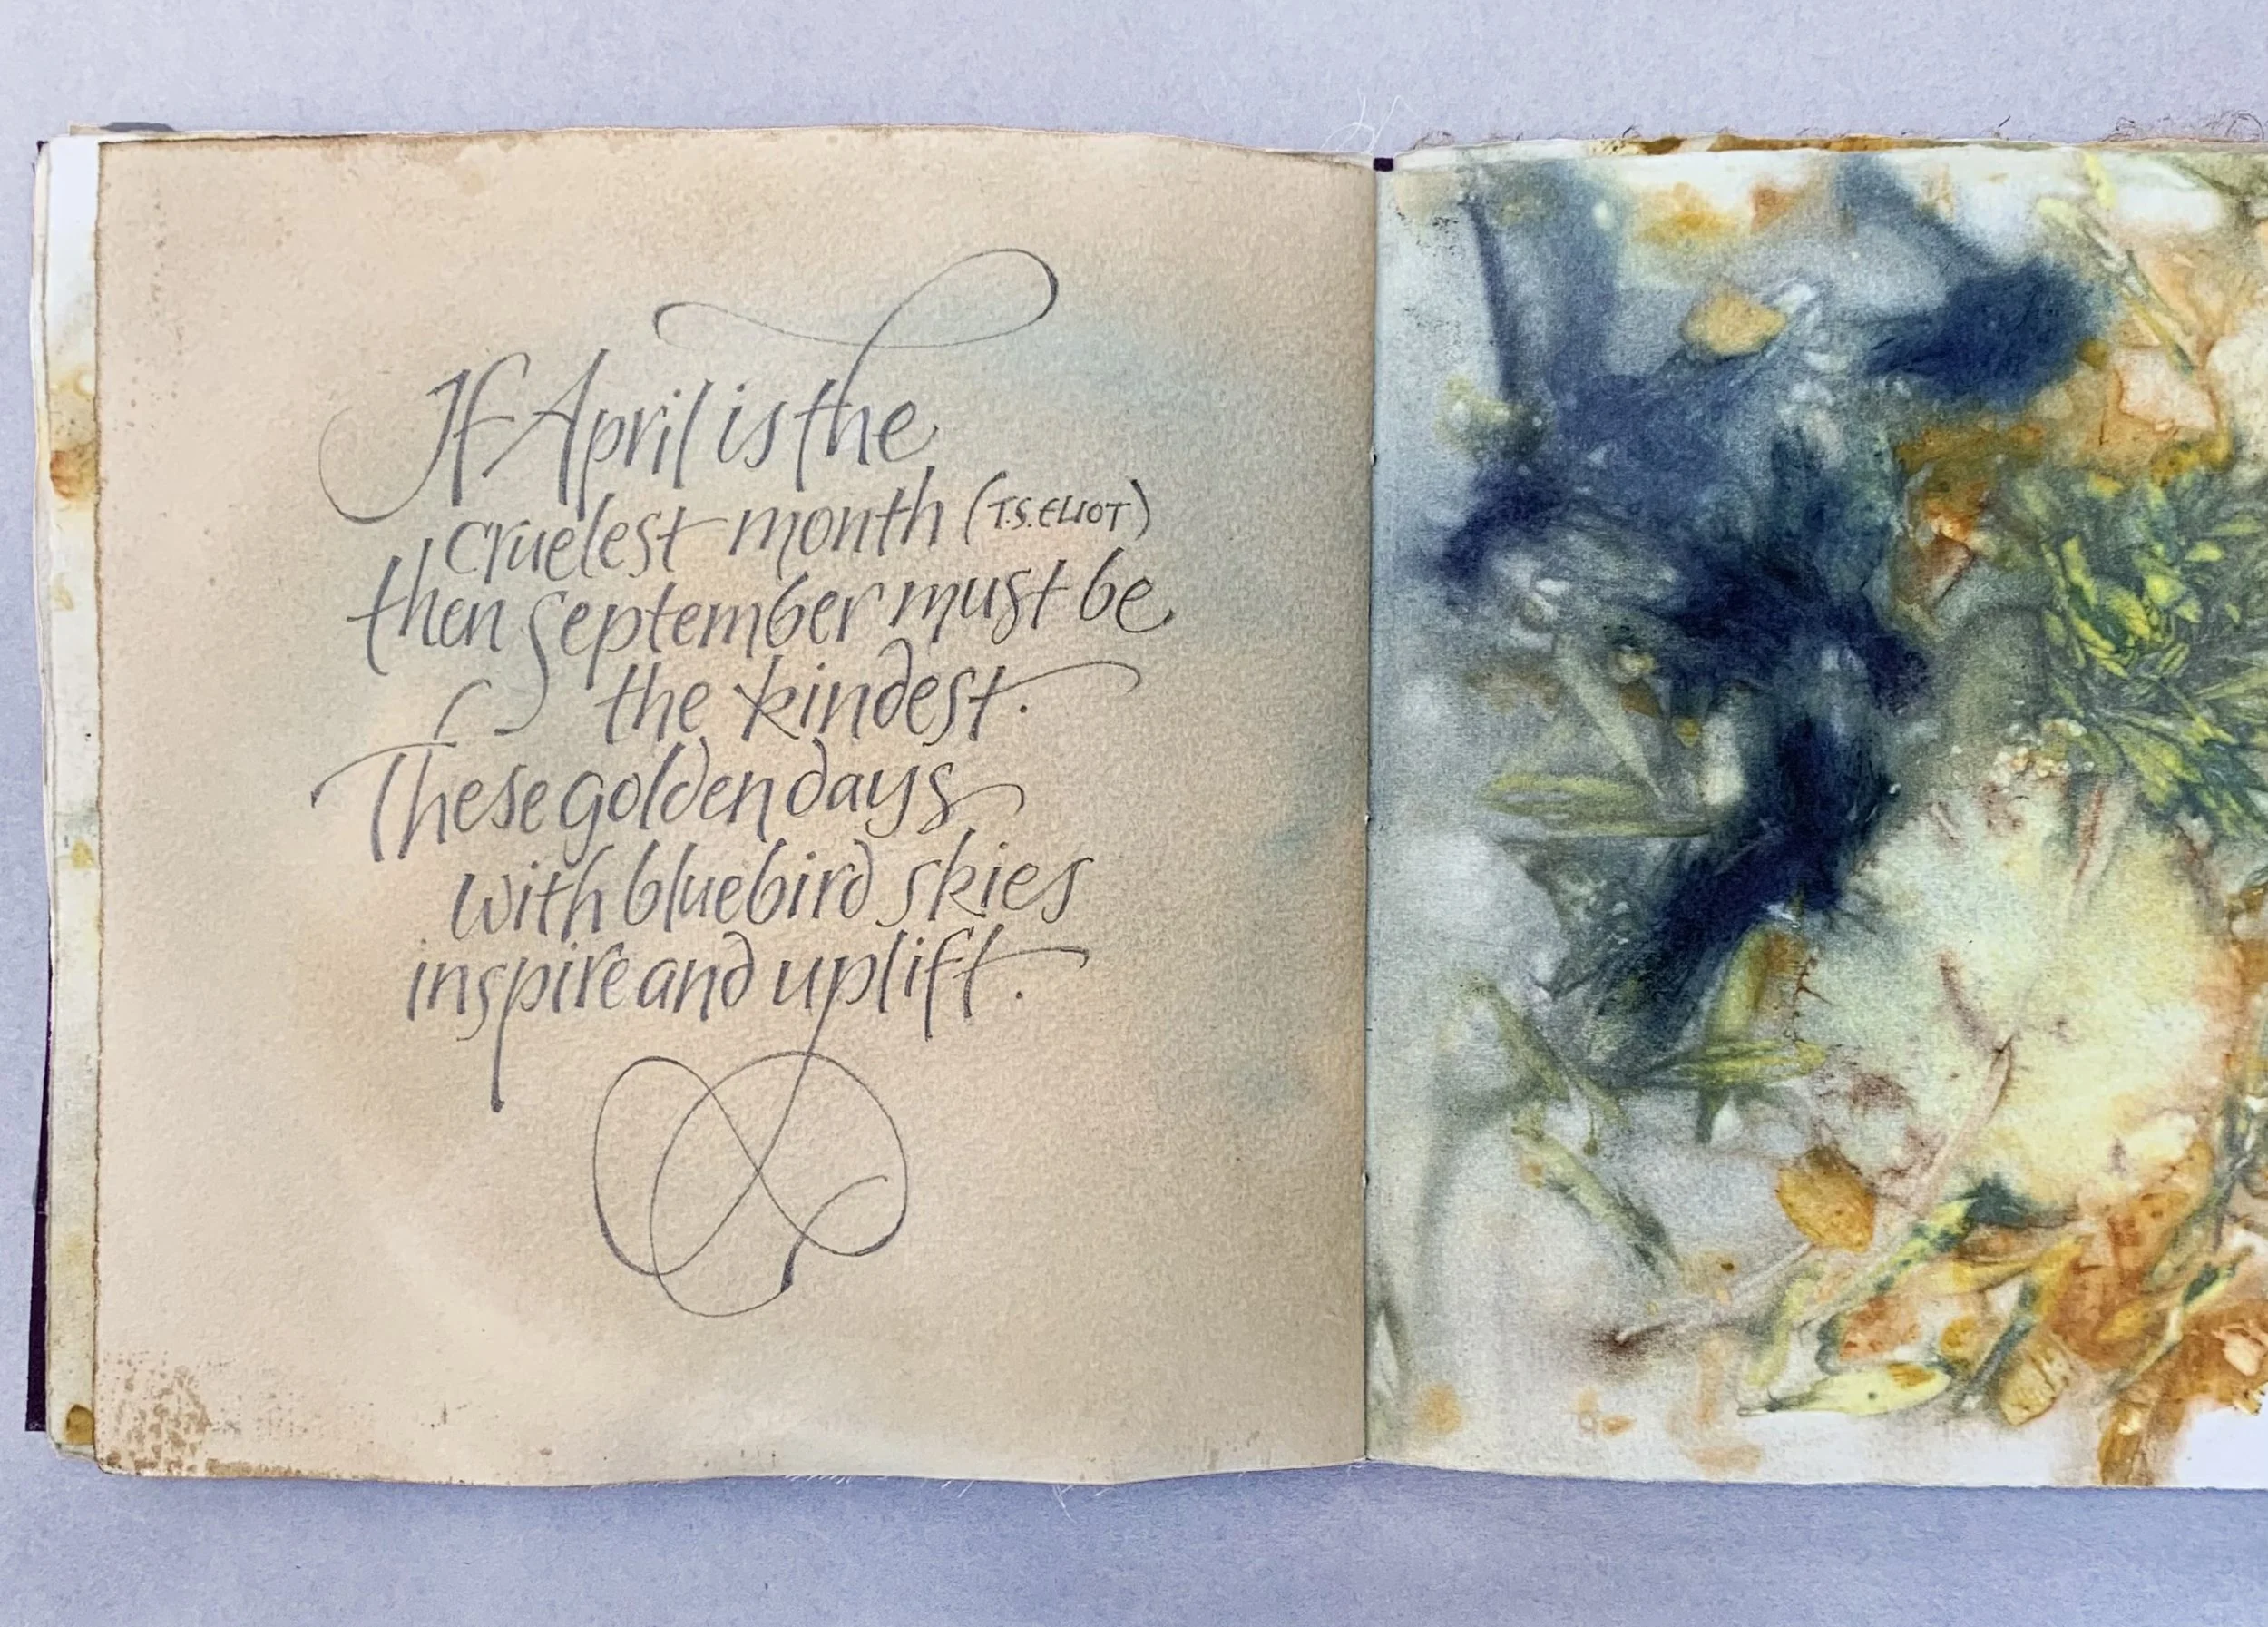 If April is the
cruelest month (T.S. ELIOT)
then September must be
the kindest.
These golden days
with bluebird skies
inspire and uplift.